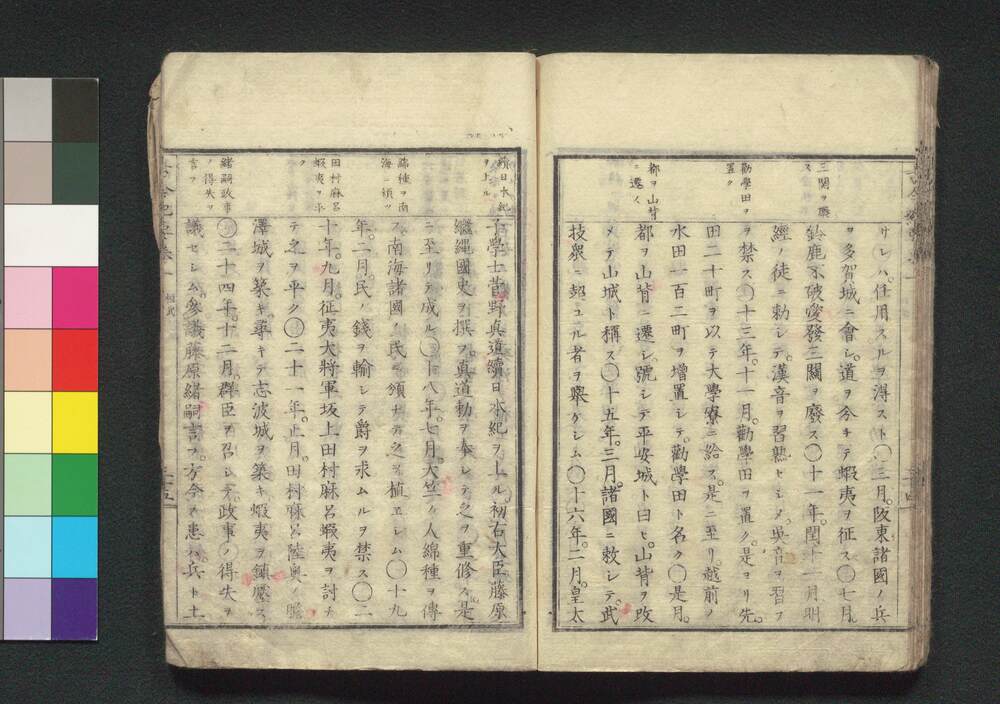 三関ヲ廢
ス
勸學田ヲ
置ク
都ヲ山背
ニ遷ス
サレハ任用スルヲ得スト〇三月。阪東諸國ノ兵
ヲ多賀城ニ會シ。道ヲ分チテ蝦夷ヲ征ス〇七月。
鈴鹿不破愛發三關ヲ廢ス〇十一年。閏十一月明
經ノ徒ニ勅シテ。漢音ヲ習熟セシメ。吳音ヲ習フ
ヲ禁ス〇十三年。十一月。勸學田ヲ置ク。是ヨリ先。
田二十町ヲ以テ大學寮ニ給ス。是ニ至リ。越前ノ
水田一百二町ヲ增置シテ。勸學田ト名ク〇是月。
都ヲ山背ニ遷シ。號シテ平安城ト曰ヒ。山背ヲ改
メテ山城ト稱ス〇十五年。三月。諸國ニ敕シテ。武
技衆ニ超ユル者ヲ擧ケシム〇十六年。二月。皇太
續日本紀
ヲ上ル
綿種ヲ南
海ニ頒ツ
田村麻呂
蝦夷ヲ平
ク
緒嗣政事
ノ得失ヲ
言フ
子學士菅野眞道續日本紀ヲ上ル。初右大臣藤原
繼繩國史ヲ撰ス。眞道勅ヲ奉シテ之ヲ重修ス。是
ニ至リテ成ル〇十八年。七月。大竺ノ人綿種ヲ傳
フ。南海諸國ノ民ニ頒チ。之ヲ植ヱシム〇十九
年。二月。民ノ錢ヲ輸シテ爵ヲ求ムルヲ禁ス〇二
十年。九月。征夷大將軍坂上田村麻呂蝦夷ヲ討チ
テ之ヲ平ク〇二十一年。正月。田村麻呂陸奧ノ膽
澤城ヲ築キ。尋キテ志波城ヲ築キ。蝦夷ヲ鎭壓ス
〇二十四年。十二月。群臣ヲ召シテ。政事ノ得失ヲ
議セシム。參議藤原緒嗣言フ。方今ノ患ハ。兵ト土